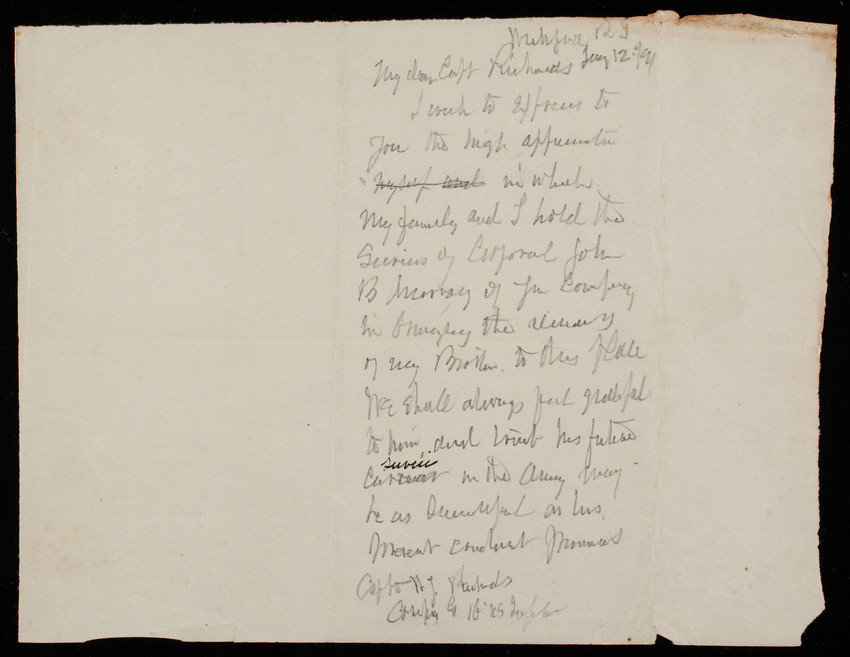 My dear Capt Richards Aug 12 /91
I wish to express to
you the high appreciation
myself and in which
my family and I hold the
services of Corporal John
B Murray of your Company
in bringing the remains
of my Brother to this place
We shall always feel grateful
to him and trust his future
service
career in the Army may
be as successful as his
present conduct promises
Capt W J Richards
Company G 16 US